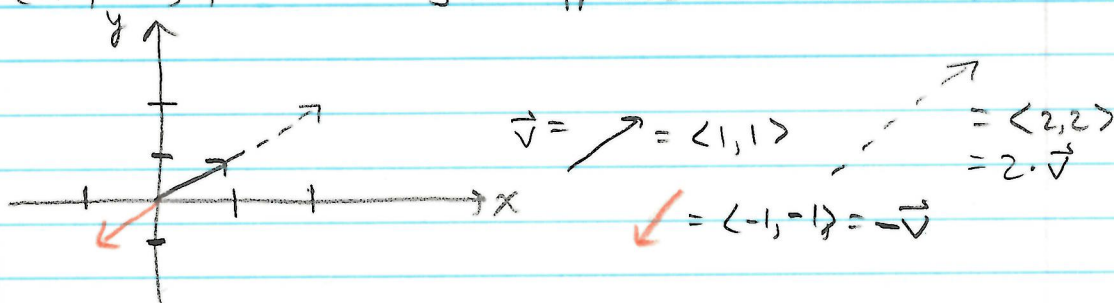 y
x
v⃗ = = <1,1>
= <2,2>
= 2·v⃗
= <-1,-1> = -v⃗